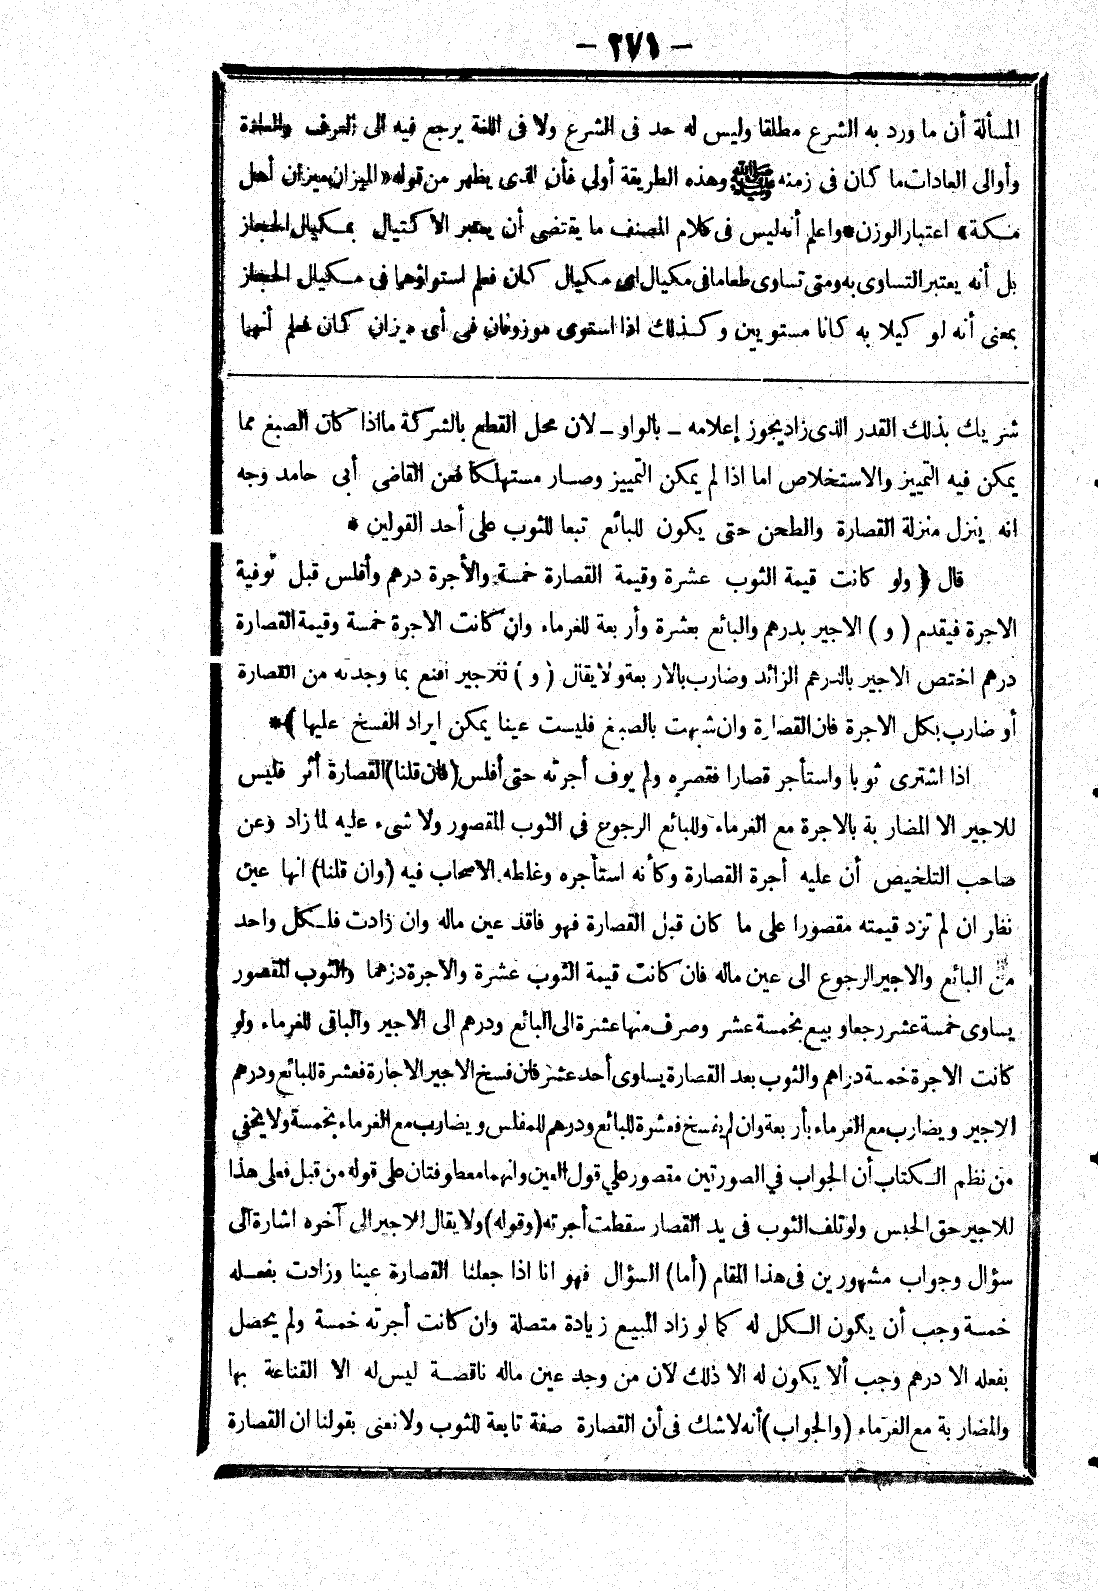 – ٢٧١ –
المسألة أن ما ورد به الشرع مطلقا وليس له حد فى الشرع ولا فى اللغة يرجع فيه الى العرف والعادة
وأوالى العادات ما كان فى زمنه ﷺ وهذه الطريقة أولى فأن الذى يظهر من قوله «الميزان ميزان أهل
مكة» اعتبار الوزن * واعلم أنه ليس فى كلام المصنف ما يقتضى أن يعتبر الاكتيال بمكيال الحجاز
بل أنه يعتبر التساوى به ومتى تساوى طعاما فى مكيال اى مكيال كان فعلم استواؤهما فى مكيال الحجاز
بمعنى أنه لو كيلا به كانا مستويين وكذلك اذا استوى موزونان فى أى ميزان كان فعلم أنهما
شريك بذلك القدر الذى زاد يجوز إعلامه ــ بالواو ــ لان محل القطع بالشركة ما اذا كان الصبغ مما
يمكن فيه التمييز والاستخلاص اما اذا لم يمكن التمييز وصار مستهلكا فعن القاضى أبى حامد وجه
انه ينزل منزلة القصارة والطحن حتى يكون للبائع تبعا للثوب على أحد القولين *
قال ﴿ ولو كانت قيمة الثوب عشرة وقيمة القصارة خمسة والأجرة درهم وأفلس قبل توفية
الاجرة فيقدم ( و ) الاجير بدرهم والبائع بعشرة وأربعة للغرماء وان كانت الاجرة خمسة وقيمة القصارة
درهم اختص الاجير بالدرهم الزائد وضارب بالاربعة ولا يقال ( و ) للاجير اقنع بما وجدته من القصارة
أو ضارب بكل الاجرة فان القصارة وان شبهت بالصبغ فليست عينا يمكن ايراد الفسخ عليها ﴾ *
اذا اشترى ثوبا واستأجر قصارا فقصره ولم يوف أجرته حتى أفلس (فان قلنا) القصارة أثر فليس
للاجير الا المضاربة بالاجرة مع الغرماء وللبائع الرجوع في الثوب المقصور ولا شىء عليه لما زاد وعن
صاحب التلخيص أن عليه أجرة القصارة وكأنه استأجره وغلطه الاصحاب فيه (وان قلنا) انها عين
نظر ان لم تزد قيمته مقصورا على ما كان قبل القصارة فهو فاقد عين ماله وان زادت فلكل واحد
من البائع والاجير الرجوع الى عين ماله فان كانت قيمة الثوب عشرة والاجرة درهما والثوب المقصور
يساوى خمسة عشر رجعا وبيع بخمسة عشر وصرف منها عشرة الى البائع ودرهم الى الاجير والباقى للغرماء ولو
كانت الاجرة خمسة دراهم والثوب بعد القصارة يساوى أحد عشر فان فسخ الاجير الاجارة فعشرة للبائع ودرهم
الاجير ويضارب مع الغرماء بأربعة وان لم يفسخ فعشرة للبائع ودرهم للمفلس ويضارب مع الغرماء بخمسة ولا يخفى
من نظم الكتاب أن الجواب في الصورتين مقصور علي قول العين وانهما معطوفتان على قوله من قبل فعلى هذا
للاجير حق الحبس ولو تلف الثوب فى يد القصار سقطت أجرته (وقوله) ولا يقال للاجير الى آخره اشارة الى
سؤال وجواب مشهورين فى هذا المقام (أما) السؤال فهو انا اذا جعلنا القصارة عينا وزادت بفعله
خمسة وجب أن يكون الكل له كما لو زاد المبيع زيادة متصلة وان كانت أجرته خمسة ولم يحصل
بفعله الا درهم وجب ألا يكون له الا ذلك لان من وجد عين ماله ناقصة ليس له الا القناعة بها
والمضاربة مع الغرماء (والجواب) أنه لا شك فى أن القصارة صفة تابعة للثوب ولا نعنى بقولنا ان القصارة